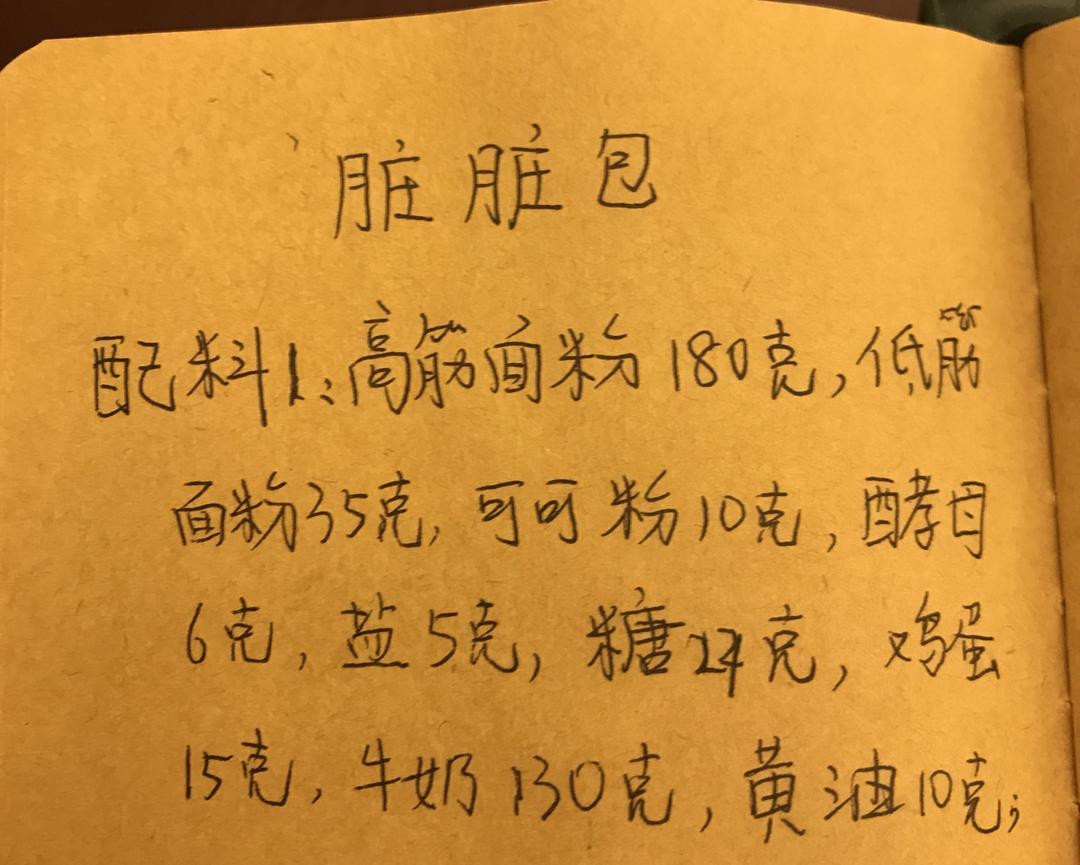 脏脏包
配料1:高筋面粉180克,低筋
面粉35克,可可粉10克,酵母
6克,盐5克,糖24克,鸡蛋
15克,牛奶130克,黄油10克;